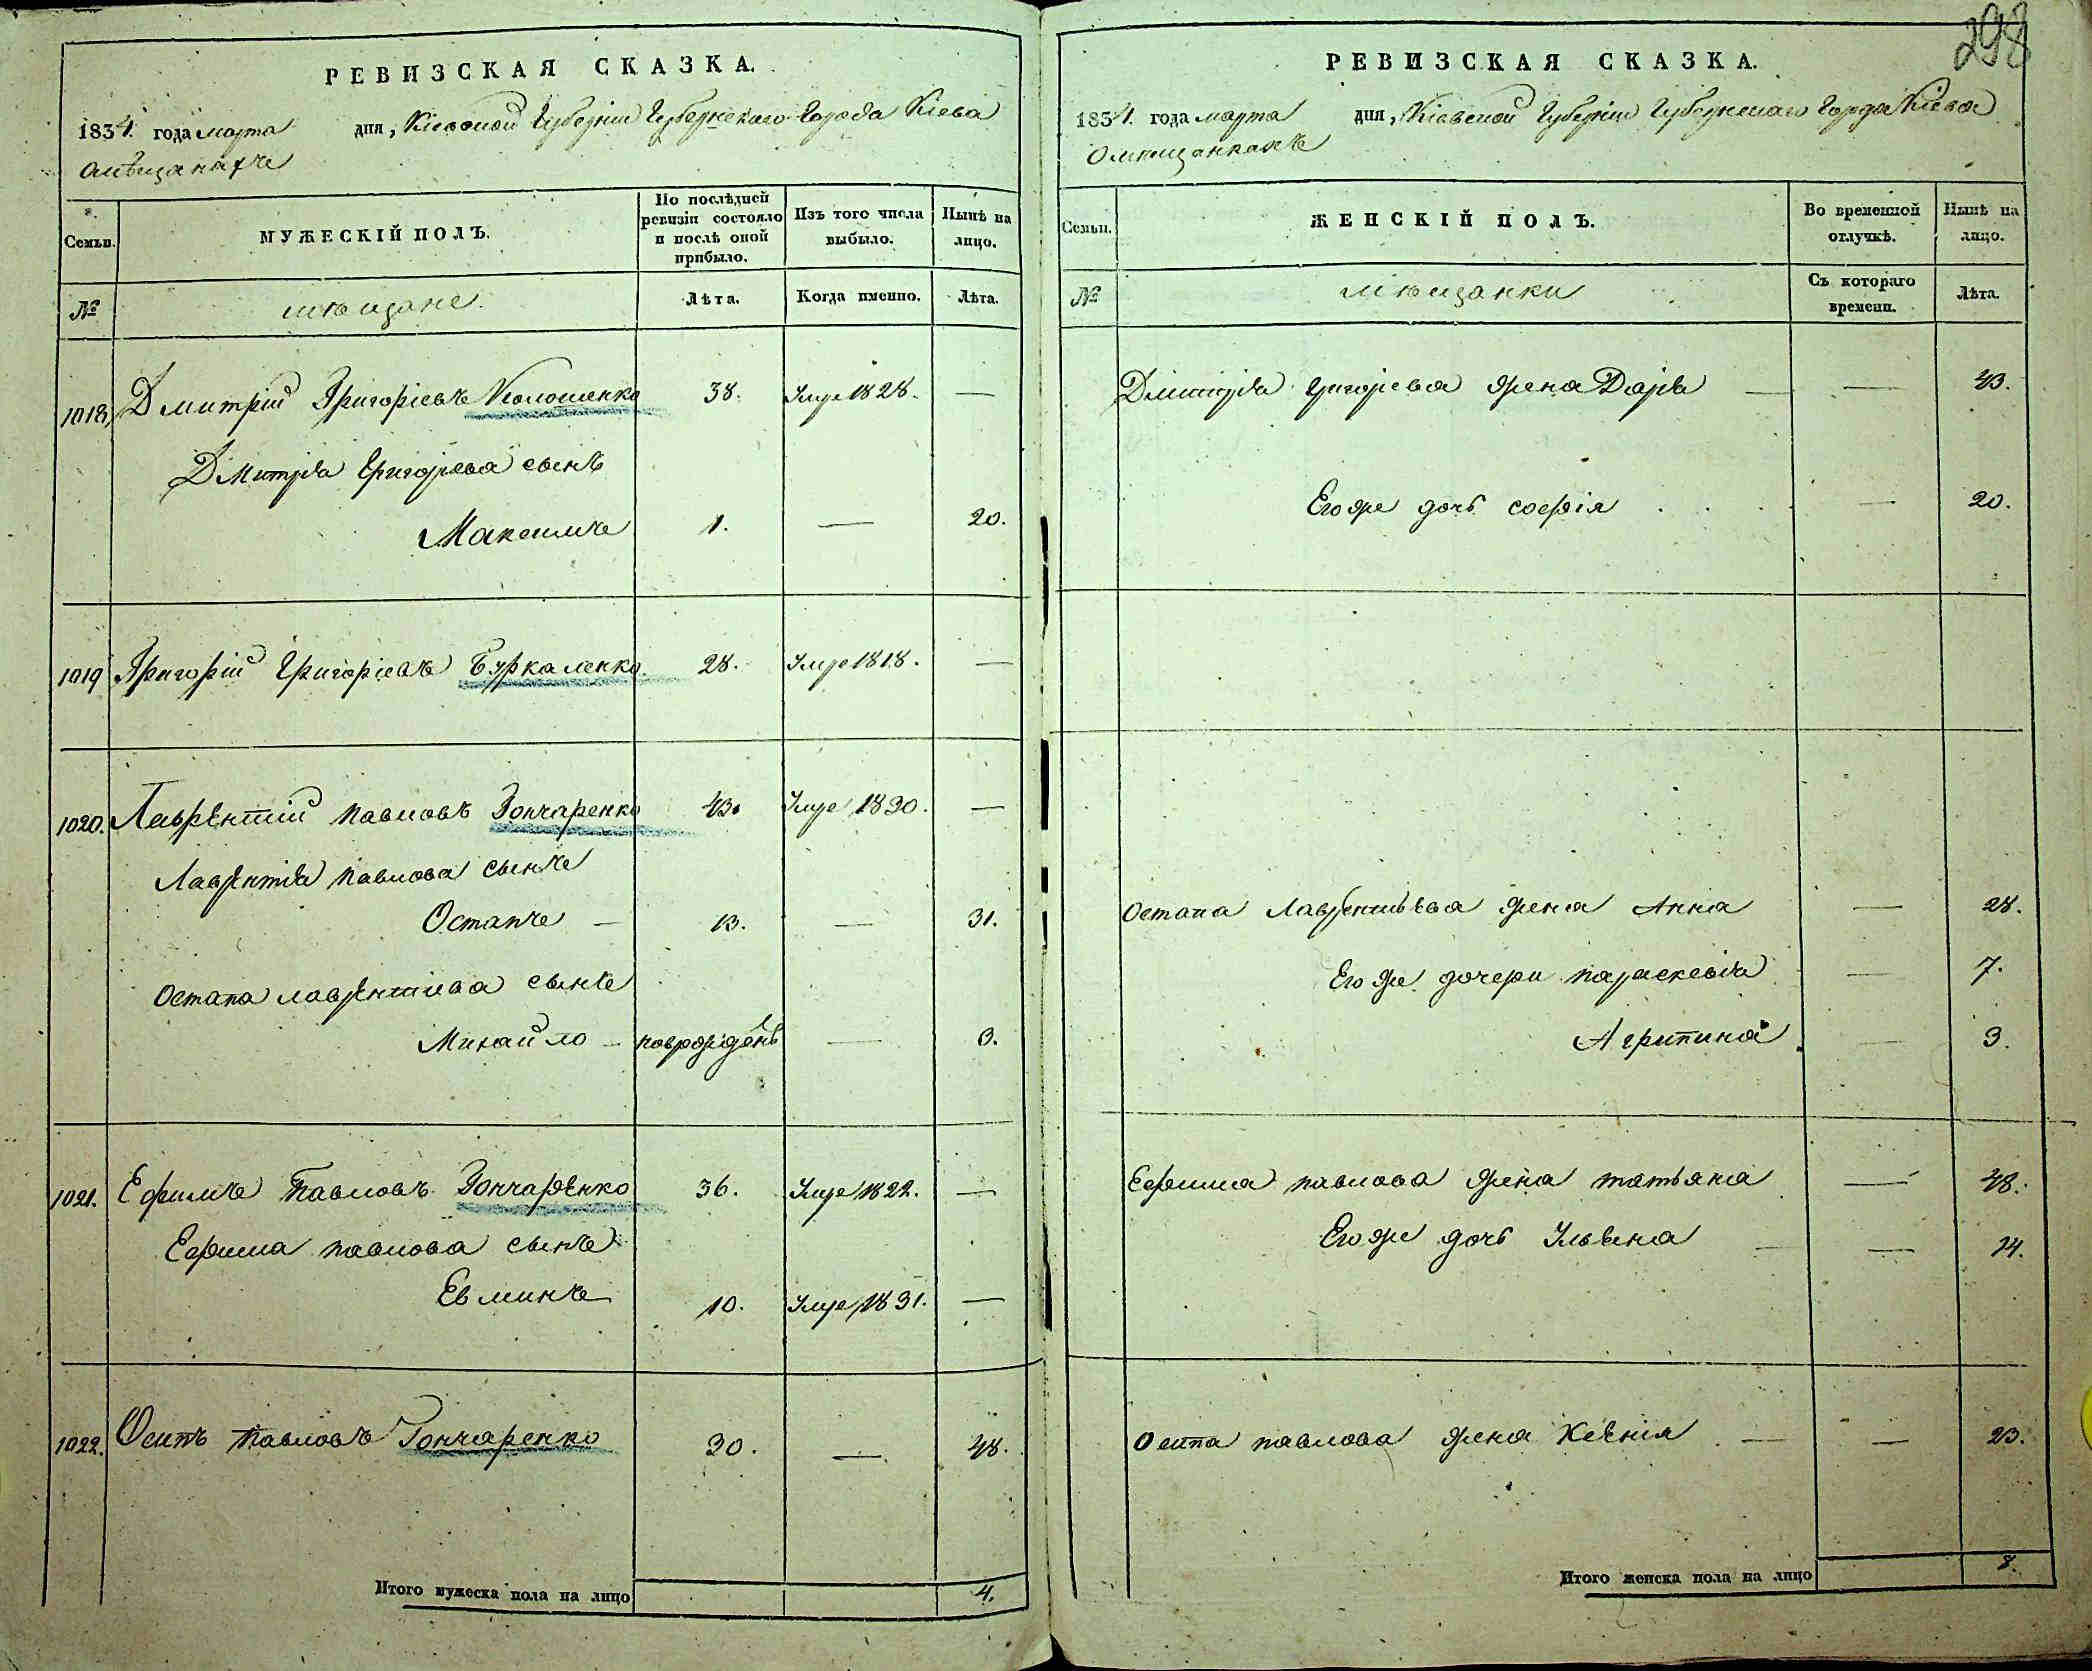 298
РЕВИЗСКАЯ СКАЗКА.
1834. года марта дня, Кіевской Губерніи Губернскаго Города Кіева
о мѣщанахъ
Семьи.
МУЖЕСКІЙ ПОЛЪ.
По послѣдней ревизіи состояло и послѣ оной прибыло.
Изъ того числа выбыло.
Нынѣ на лицо.
№
мѣщане.
Лѣта.
Когда именно.
Лѣта.
1018. Дмитрій Григоріевъ 38. Умре 1828. —
Дмитрія Григорьева сынъ
Максимъ 1. — 20.
1019 Григорій Григоріевъ Буркаленко. 28. Умре 1818. —
1020. Лаврентій Павловъ Гончаренко 43. Умре 1830. —
Лаврентія Павлова сынъ
Остапъ — 13. — 31.
Остапа Лаврентиева сынъ
Михайло — новрожденъ — 3.
1021. Ефимъ Павловъ Гончаренко 36. Умре 1822. —
Ефима Павлова сынъ
10. Умре 1831. —
1022. Осипъ Павловъ Гончаренко 30. — 48.
Итого мужеска пола на лицо 4.
РЕВИЗСКАЯ СКАЗКА.
1834. года марта дня, Кіевской Губерніи Губернскаго Города Кіева
О мѣщанкахъ
Семьи.
ЖЕНСКІЙ ПОЛЪ.
Во временной отлучкѣ.
Нынѣ на лицо.
№
мѣщанки
Съ котораго времени.
Лѣта.
Дмитрія Григорьева жена Дарія — — 43.
Его же дочь Софія — 20.
Остапа Лаврентьева жена Анна — 28.
Его же дочери Параскевія — 7.
Агрипина — 3.
Ефима Павлова жена Татьяна — 48.
Его же дочь Ульяна — — 14.
Осипа Павлова жена Ксенія — — 23.
Итого женска пола на лицо 8.